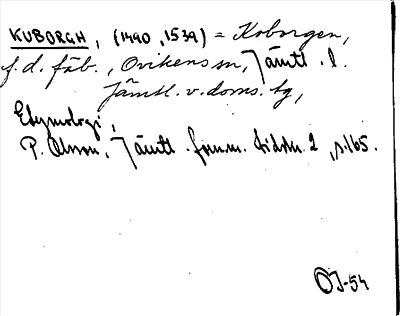 KUBORGH, (1490, 1539) = Koborgen,
f.d. fäb., Ovikens sn, Jämtl. l.
Jämtl. v. doms. tg,
Etymologi,
P. Olsson, Jämtl. fornm. tidskr. 2, s. 165.
OJ-54